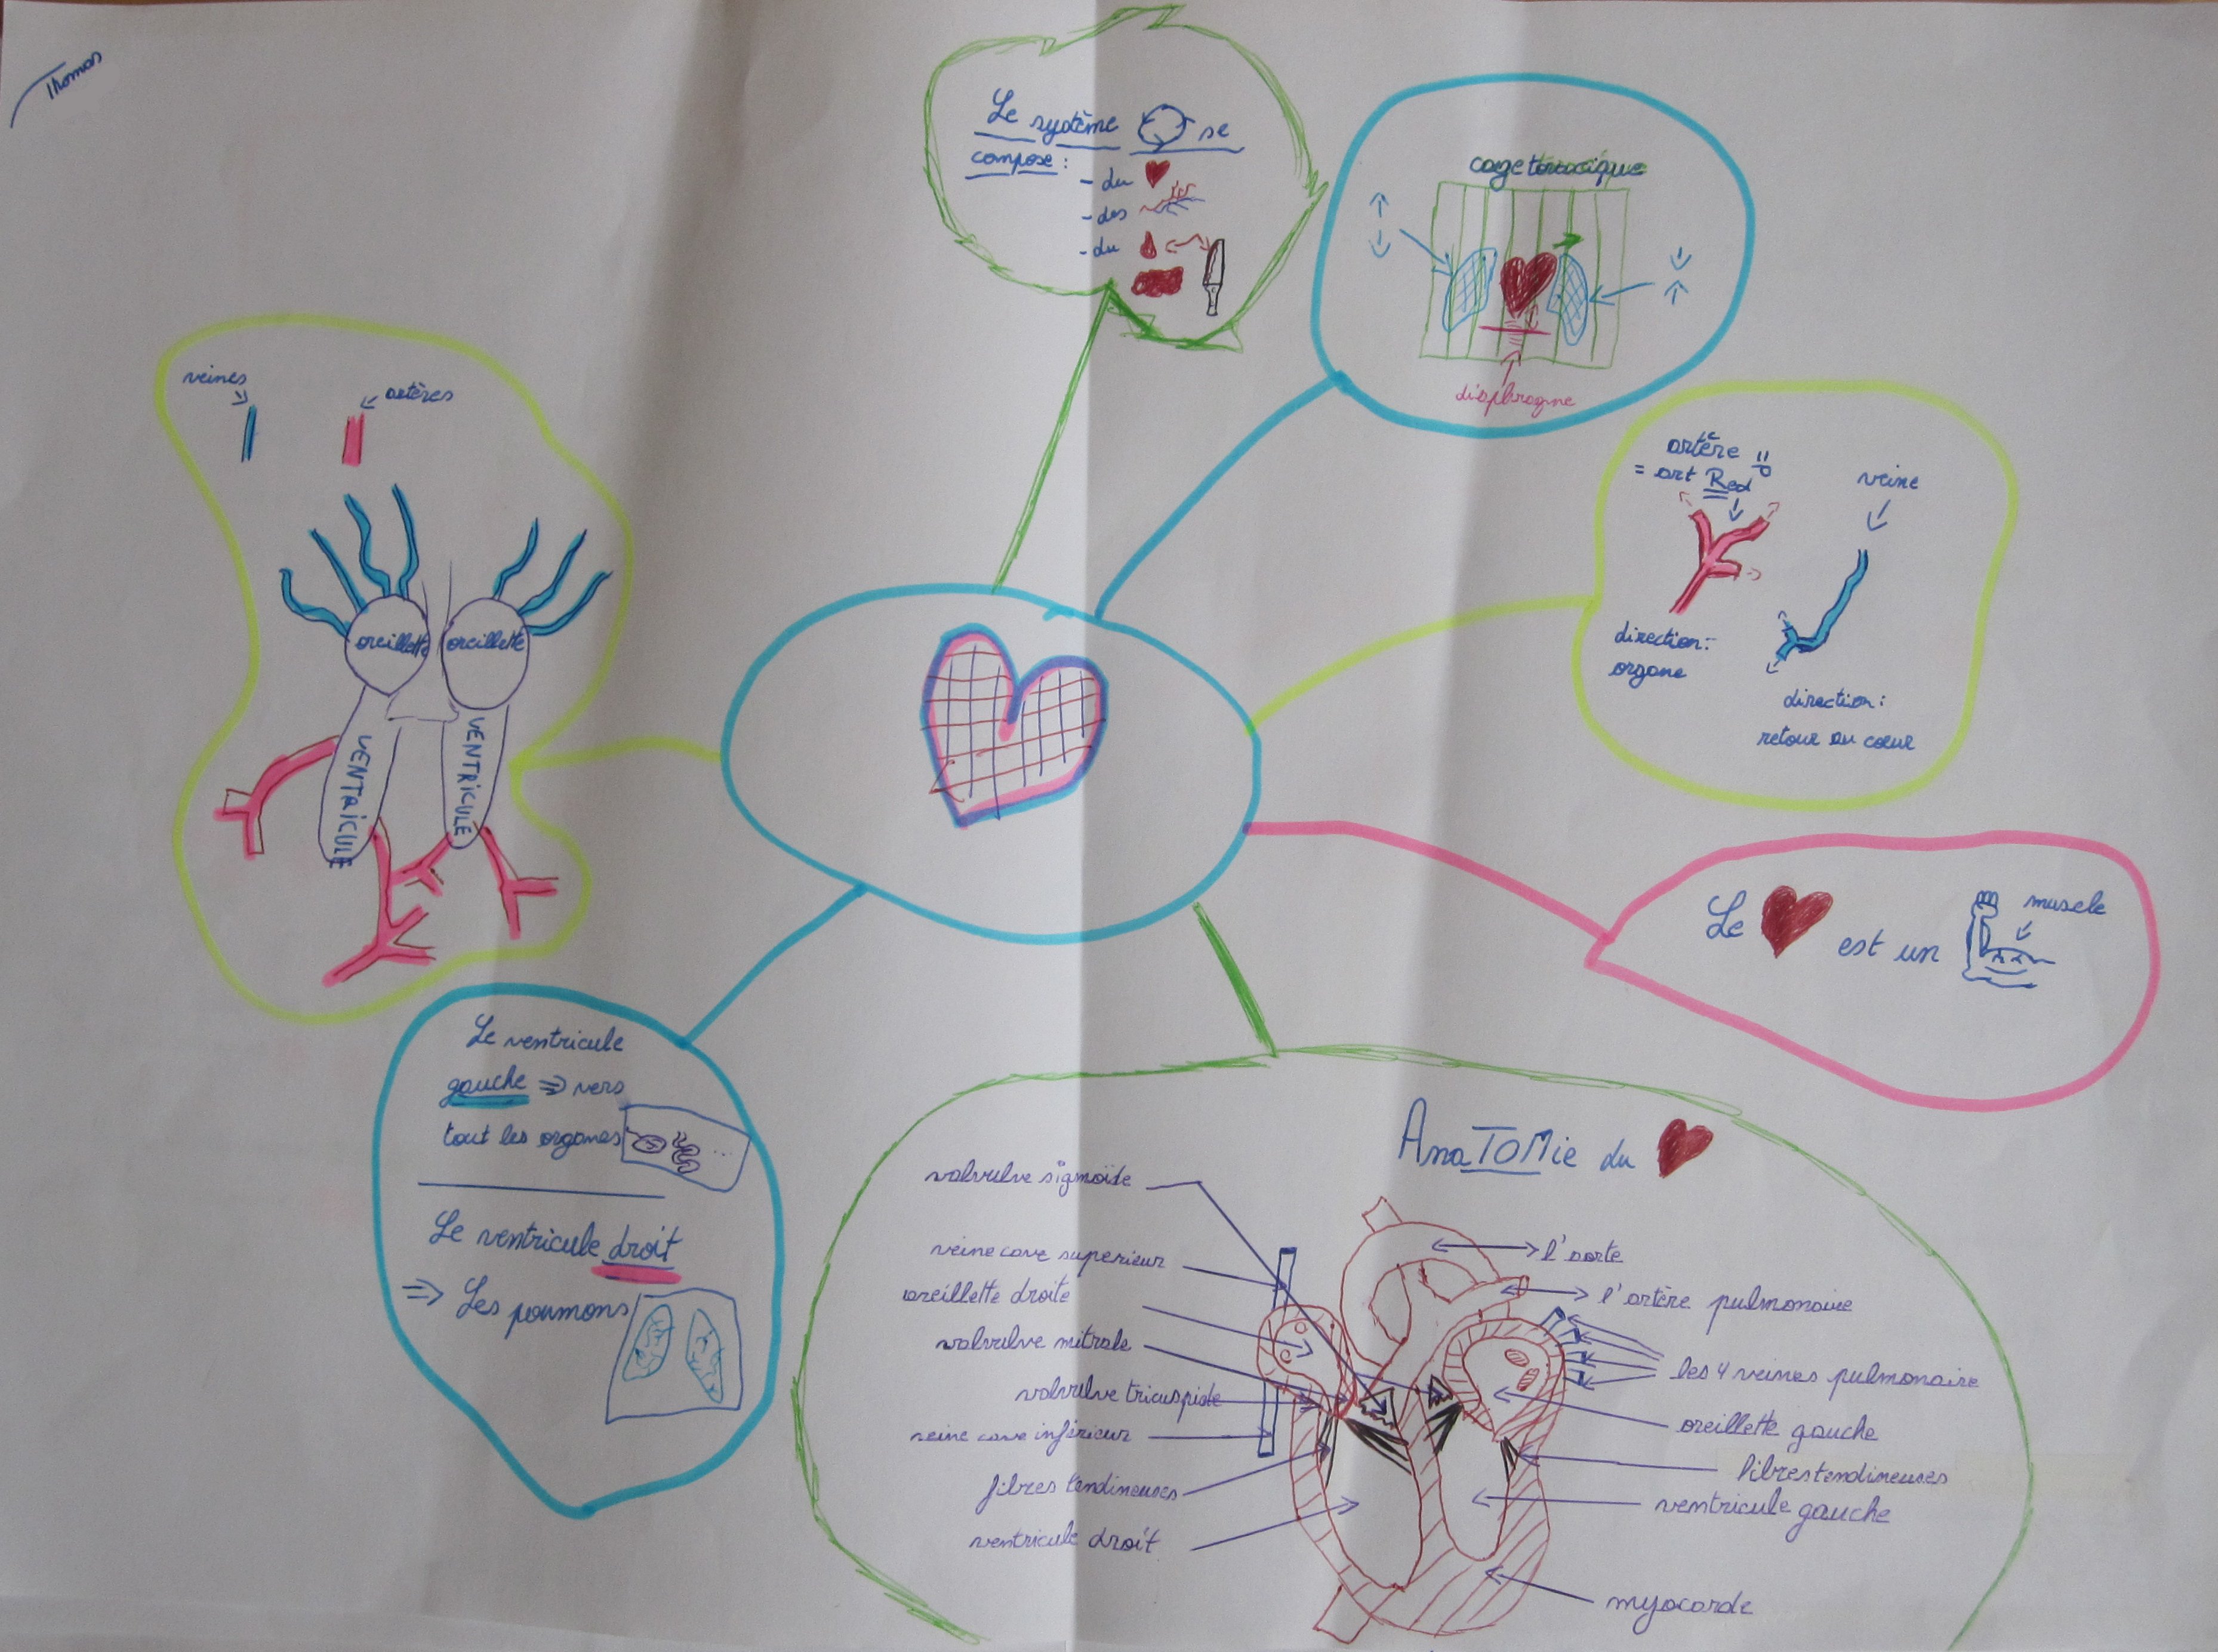 Thomas
Le système se
compose :
- du
- des
- du
cage toracique
diaphragme
artère
= art Red
veine
direction :
organe
direction :
retour au cœur
veines
artères
oreillette
oreillette
VENTRICULE
VENTRICULE
Le est un
muscle
Le ventricule
gauche ⇒ vers
tout les organes
...
Le ventricule droit
⇒ Les poumons
AnaTOMie du
valvulve sigmoïde
veine cave superieur
oreillette droite
valvulve mitrale
valvulve tricuspide
veine cave inférieur
fibres tendineuses
ventricule droit
l'aorte
l'artère pulmonaire
les 4 veines pulmonaire
oreillette gauche
fibres tendineuses
ventricule gauche
myocarde